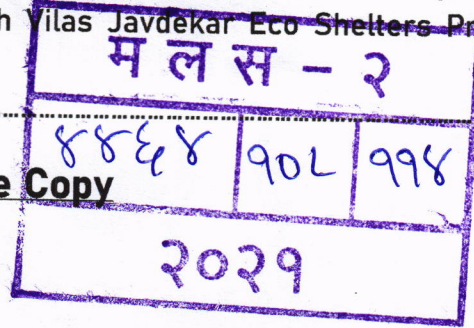 h Vilas Javdekar Eco Shelters Pr
म ल स – २
४४६४ १०८ ११४
e Copy
२०२१